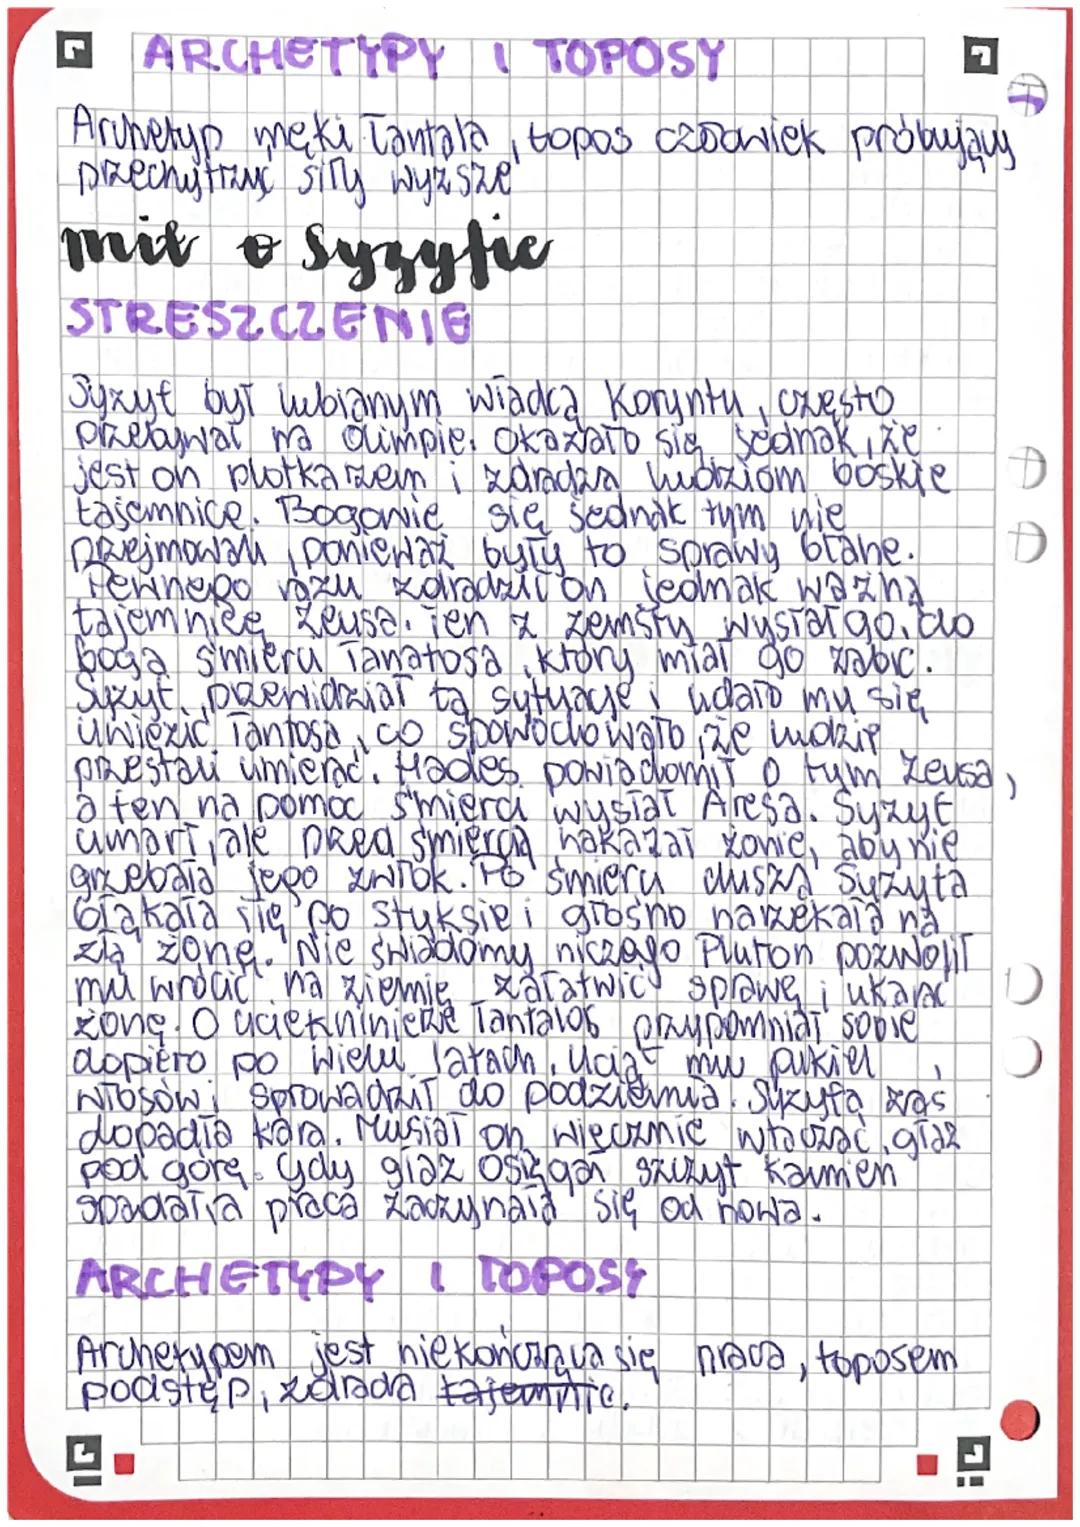 ARCHETYPY I TOPOSY
Archetyp męki Tantala, topos człowiek próbujący
przechytrzyć siły wyższe
mit o Syzyfie
STRESZCZENIE
Syzyf był lubianym władcą Koryntu, często
przebywał na Olimpie. Okazało się jednak, że
jest on plotkarzem i zdradza ludziom boskie
tajemnice. Bogowie się jednak tym nie
przejmowali, ponieważ były to sprawy błahe.
Pewnego razu zdradził on jednak ważną
tajemnicę Zeusa. Ten z zemsty wysłał go do
boga śmierci Tanatosa, który miał go zabić.
Syzyf przewidział tą sytuację i udało mu się
uwięzić Tantosa, co spowodowało, że ludzie
przestali umierać. Hades powiadomił o tym Zeusa,
a ten na pomoc śmierci wysłał Aresa. Syzyf
umarł, ale przed śmiercią nakazał żonie, aby nie
grzebała jego zwłok. Po śmierci dusza Syzyfa
błąkała się po Styksie i głośno narzekała na
złą żonę. Nie świadomy niczego Pluton pozwolił
mu wrócić na ziemię załatwić sprawę i ukarać
żonę. O uciekninierze Tantalos przypomniał sobie
dopiero po wielu latach. Uciął mu pukiel
włosów i sprowadził do podziemia. Syzyfa zaś
dopadła kara. Musiał on wiecznie wtaczać głaz
pod górę. Gdy głaz osiągał szczyt kamień
spadał, a praca zaczynała się od nowa.
ARCHETYPY I TOPOSY
Archetypem jest niekończąca się praca, toposem
podstęp, zdrada tajemnic.